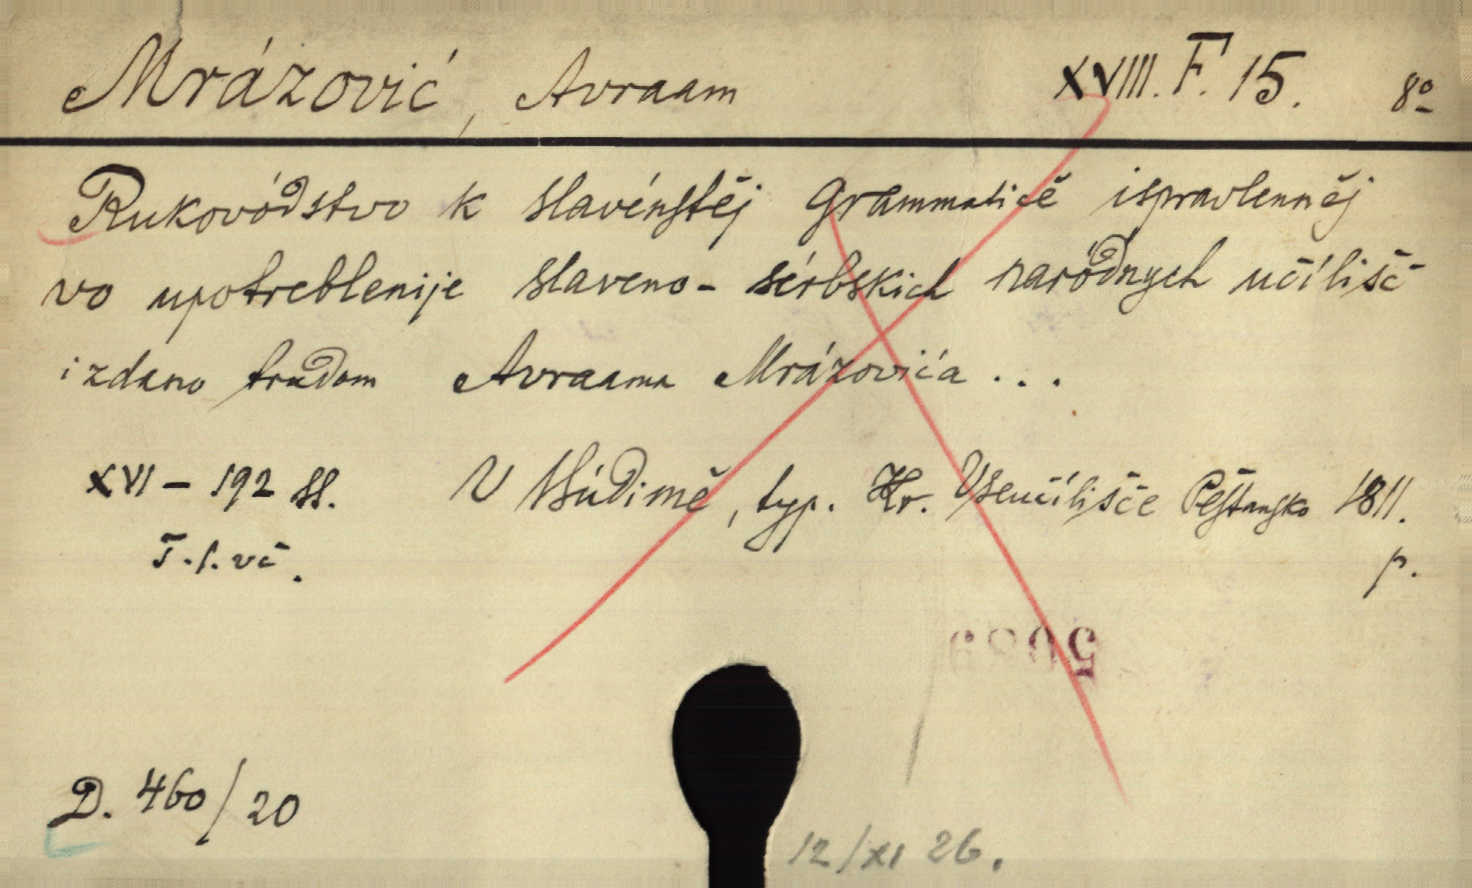 Mrázović, Avraam XVIII. F. 15. 8º
Rukovódstvo k slavénstěj grammaticě ispravlenněj
vo upotreblenije slaveno-sérbskich naródnych učílišč
izdano trudom Avraama Mrázovića...
XVI-192 SS. V Búdimě, typ. Kr. Vseučílišče Peštansko 1811.
T.s.vč. p.
5089
D. 460/20
12/XI 26.